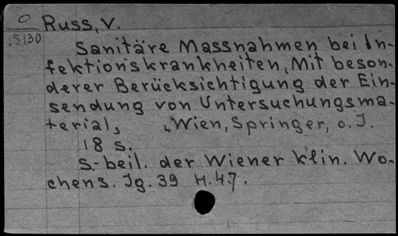 O
S130
Russ, V.
Sanitäre Massnahmen bei In-
fektionskrankheiten, Mit beson-
derer Berücksichtigung der Ein-
sendung von Untersuchungsma-
terial, Wien, Springer, o. J.
18 s.
S.-beil. der Wiener klin. Wo-
chens. Jg. 39 H. 47.